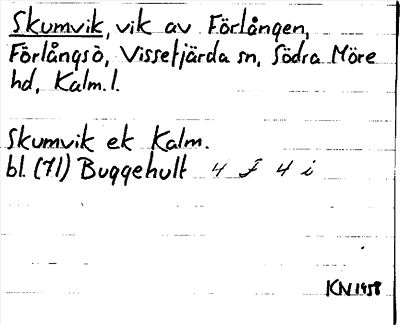 Skumvik, vik av Förlången,
Förlångsö, Vissefjärda sn, Södra Möre
hd, Kalm.l.
Skumvik ek Kalm.
bl. (71) Buggehult 4 F 4 i
KN 1958